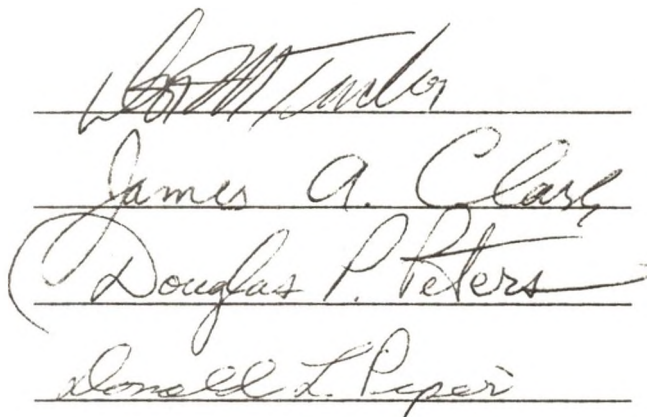 James A. Clark
Douglas P. Peters
Donald L. Piper